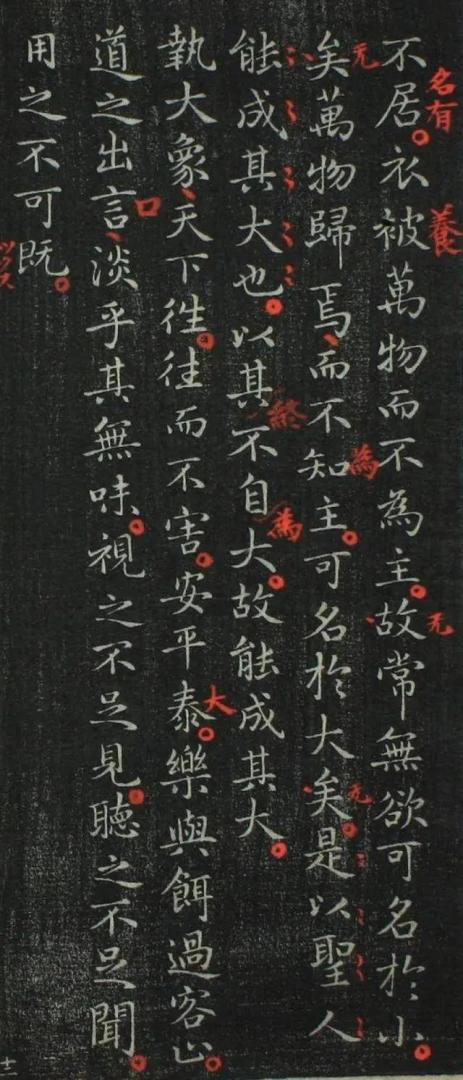 不居衣被萬物而不為主故常無欲可名於小
矣萬物歸焉而不知主可名於大矣是以聖人
能成其大也以其不自大故能成其大
執大象天下徃徃而不害安平泰樂與餌過客止
道之出言淡乎其無味視之不足見聽之不足聞
用之不可既
名有
養
无
无
為
无
終
為
大
口
十二